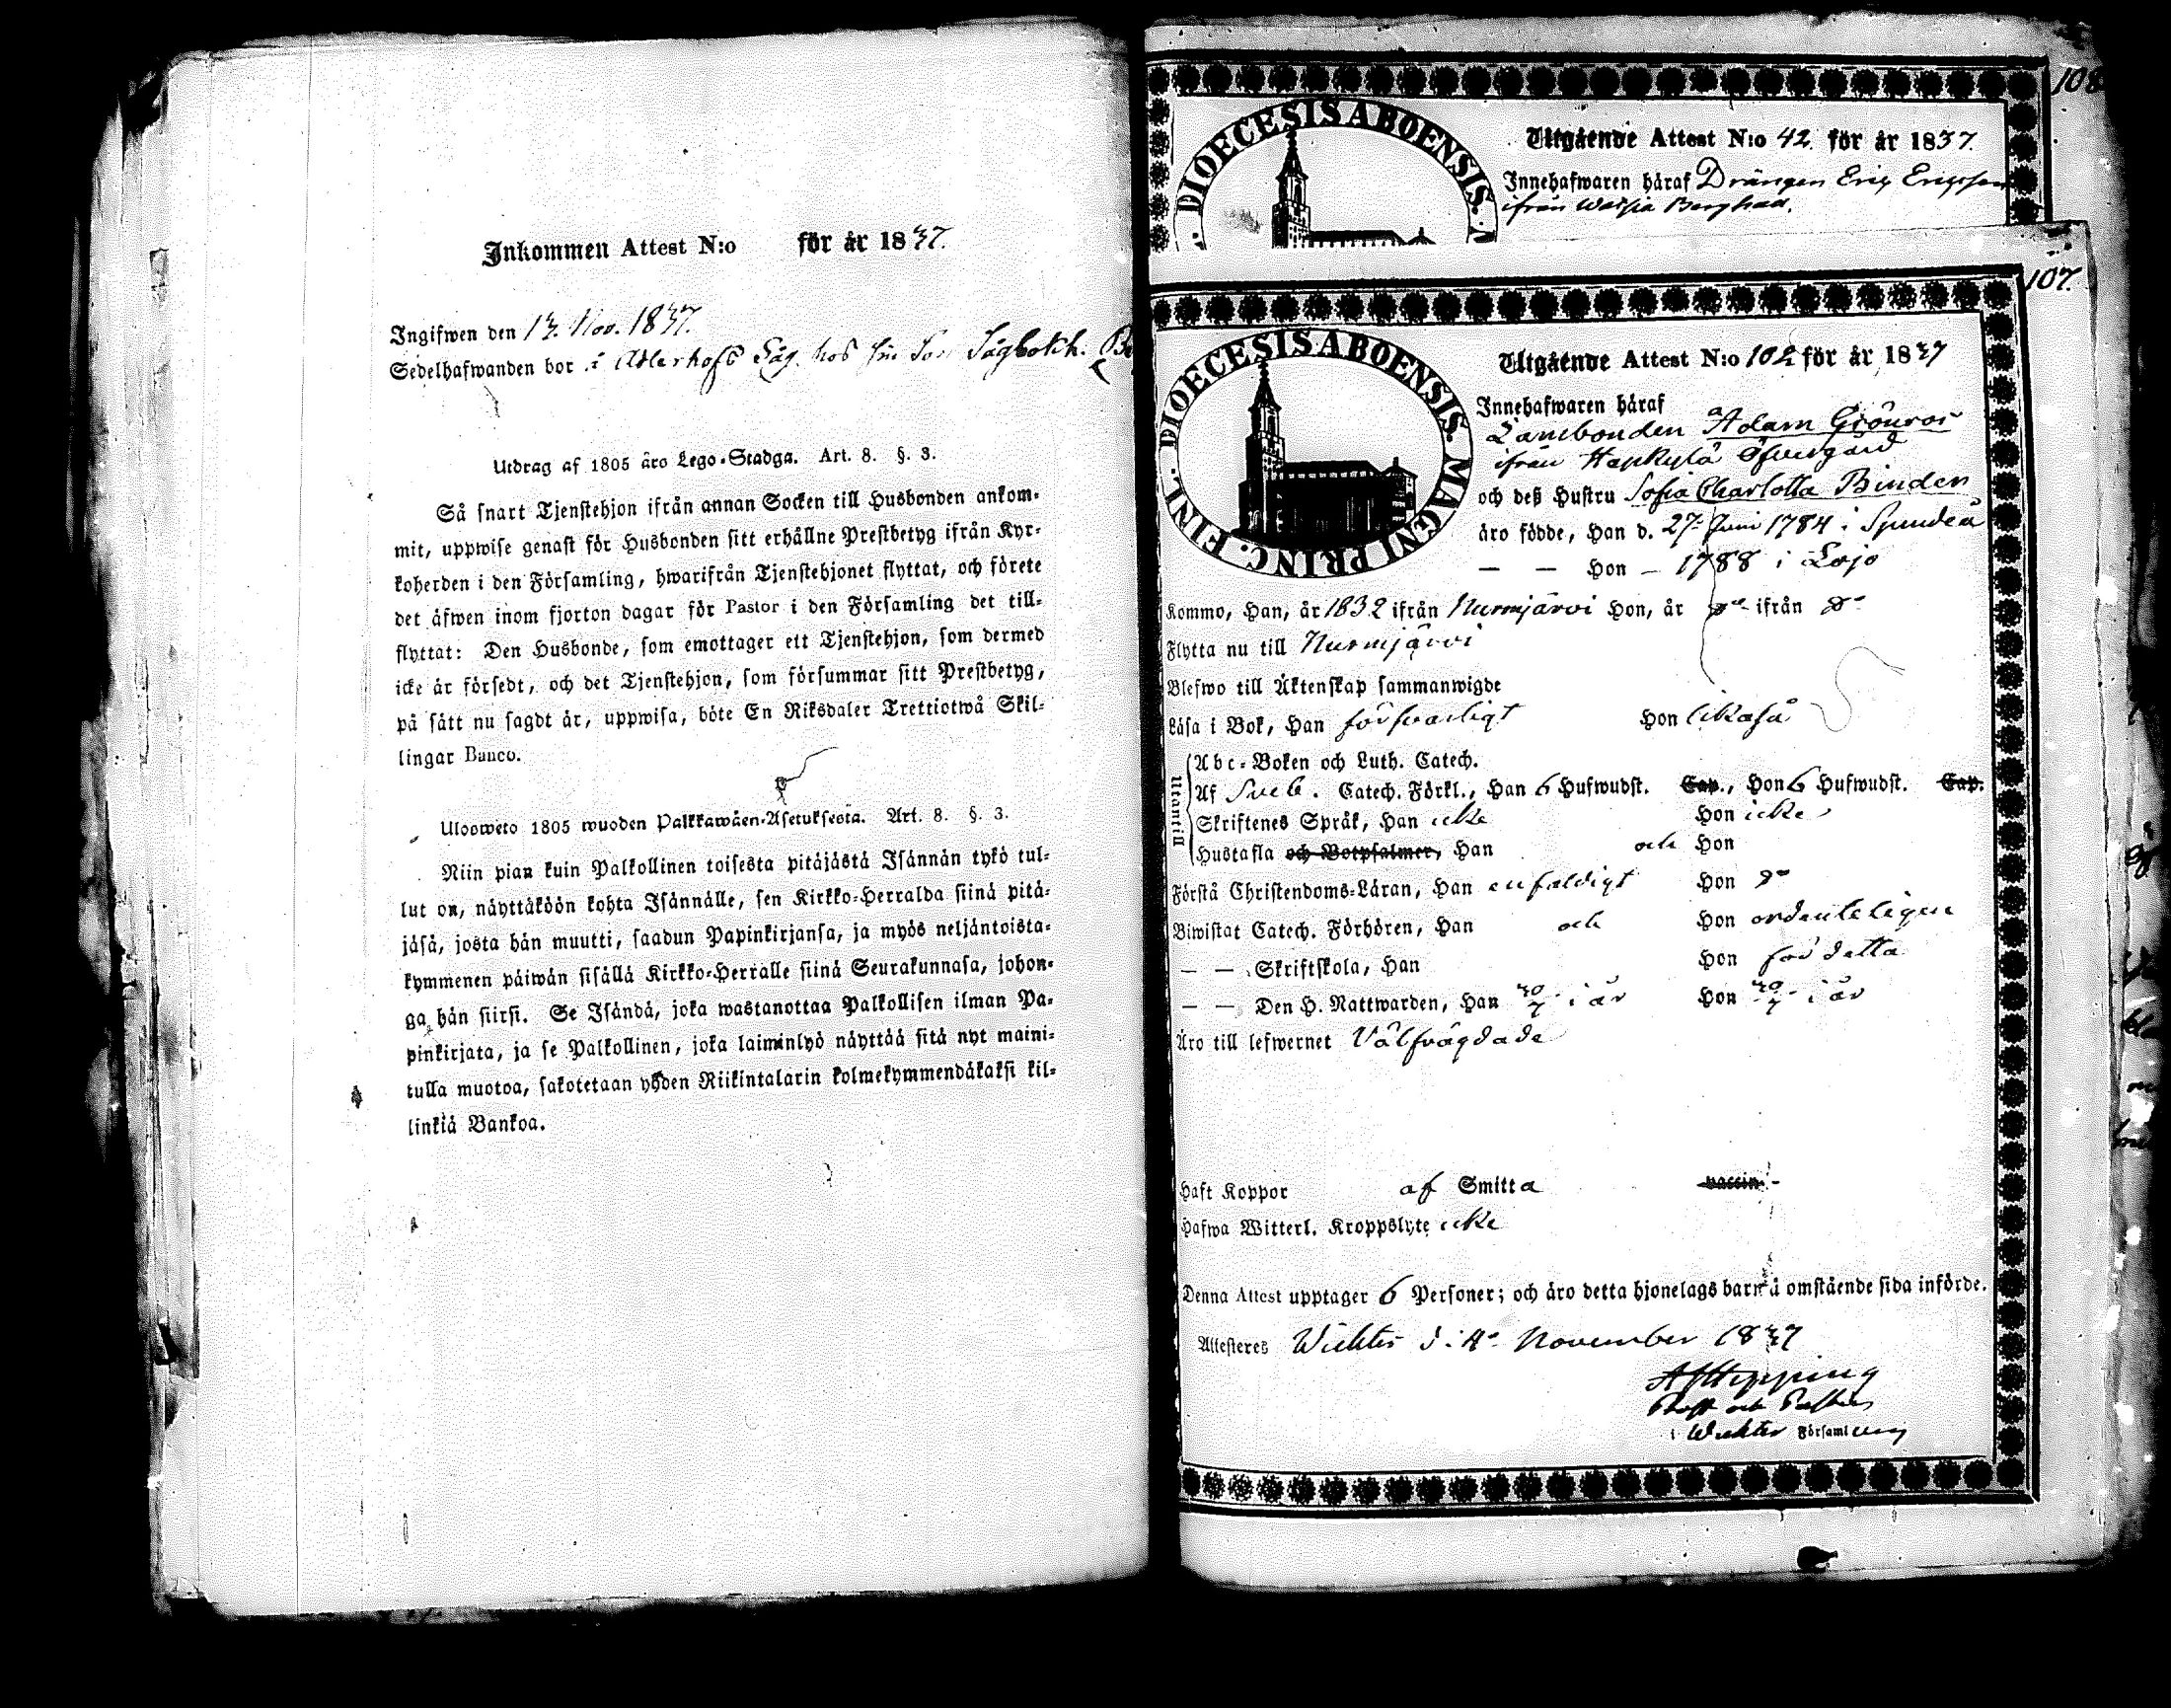 Inkommen Attest N:o för år 1837.
Ingifwen den 13. Nov. 1837.
Sedelhafwanden bor i Såg. hos sin Son Sågbokh.
Utdrag af 1805 åro Lego-Stadga. Art. 8. §. 3.
Så snart Tjenstehjon ifrån annan Socken till Husbonden ankom-
mit, uppwise genast för Husbonden sitt erhållne Prestbetyg ifrån Kyr-
koherden i den Församling, hwarifrån Tjenstehjonet flyttat, och förete
det åfwen inom fjorton dagar för Pastor i den Församling det till-
flyttat: Den Husbonde, som emottager ett Tjenstehjon, som dermed
icke år försedt, och det Tjenstehjon, som försummar sitt Prestbetyg,
på sått nu sagdt år, uppwisa, böte En Riksdaler Trettiotwå Skil-
lingar Banco.
Uloosweto 1805 wuoden Palkkawåen-Asetuksesta. Art. 8. §. 3.
Niin pian kuin Palkollinen toisesta pitåjåstå Isånnån tykö tul-
lut on, nåyttåköön kohta Isånnålle, sen Kirkko-Herralda siinå pitå-
jåså, josta hån muutti, saadun Papinkirjansa, ja myös neljåntoista-
kymmenen påiwån sisållå Kirkko-Herralle siinå Seurakunnasa, johon-
ga hån siirsi. Se Isåndå, joka wastanottaa Palkollisen ilman Pa-
pinkirjata, ja se Palkollinen, joka laiminlyö nåyttåå sitå nyt maini-
tulla muotoa, sakotetaan yhden Riikintalarin kolmekymmendåkaksi kil-
linkiå Bankoa.
108
DIOECESIS ABOENSIS.
Utgående Attest N:o 42 för år 1837.
Innehafwaren håraf Drängen Eric Ericsson
ifrån
107.
DIOECESIS ABOENSIS. MAGNI PRINC. FINL.
Utgående Attest N:o 102 för år 1837
Innehafwaren håraf
Adam Grönroos
ifrån Haapkylä Öfvergård
och deß Hustru Sofia Charlotta Binden
åro födde, Han d. 27 Juni 1784 i Spundeå
— — Hon — 1788 i Lojo
Kommo, Han, år 1832 ifrån Nurmijärvi Hon, år do ifrån do
Flytta nu till Nurmijärvi
Blefwo till Åktenskap sammanwigde
Låsa i Bok, Han försvarligt Hon likaså
Utantill
Abc-Boken och Luth. Catech.
Af Sveb. Catech. Förkl., Han 6 Hufwudst. Cap., Hon 6 Hufwudst. Cap.
Skriftenes Språk, Han icke Hon icke
Hustafla och Botpsalmer, Han och Hon
Förstå Christendoms-Låran, Han enfaldigt Hon do
Biwistat Catech. Förhören, Han och Hon ordenteligen
— — Skriftskola, Han Hon för detta
— — Den H. Nattwarden, Han 30/7 i år Hon 30/7 i år
Åro till lefwernet Välfrägdade
Haft Koppor af Smitta vaccin.
Hafwa Witterl. Kroppslyte icke
Denna Attest upptager 6 Personer; och åro detta hjonelags barn å omstående sida införde.
Attesteres Wichtis d. 4 November 1837
Prost och Pastor
i Wichtis Församling